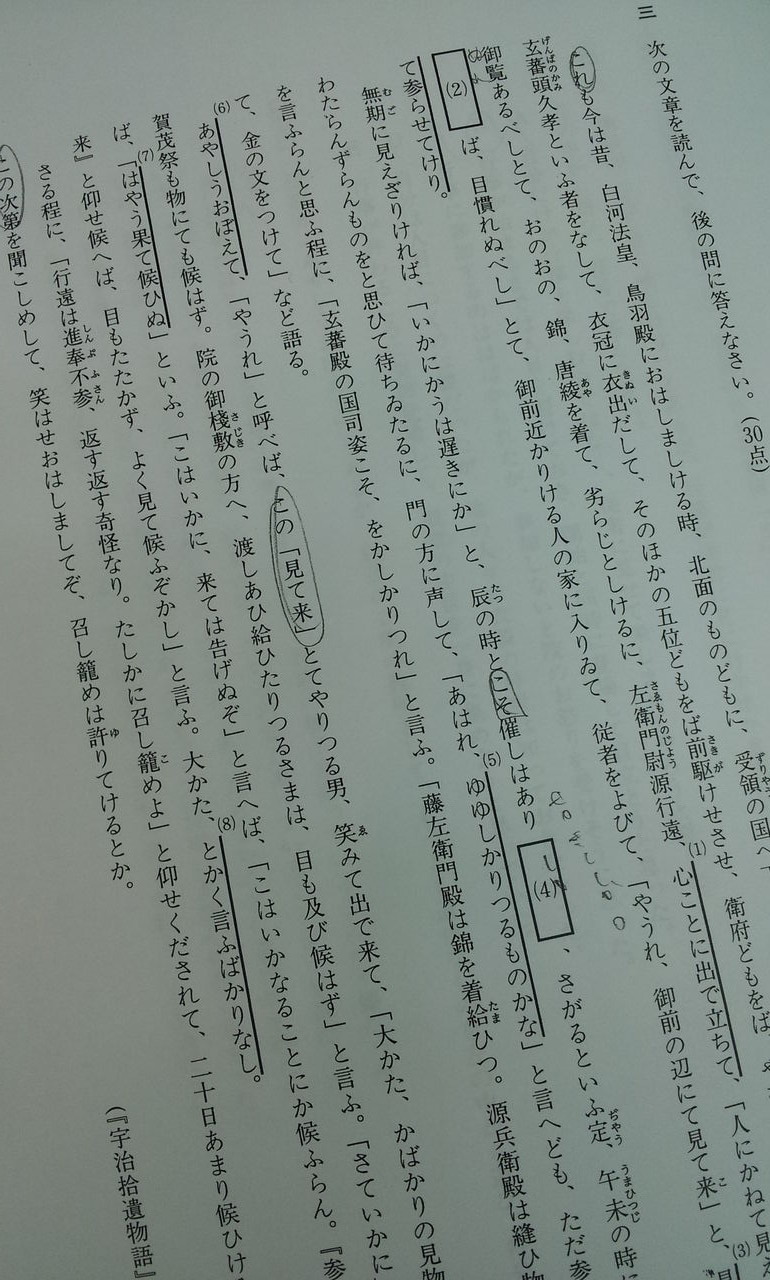 三 次の文章を読んで、後の問に答えなさい。(30点)
これも今は昔、白河法皇、鳥羽殿におはしましける時、北面のものどもに、受領の国へ
玄蕃頭久孝といふ者をなして、衣冠に衣出だして、そのほかの五位どもをば前駆けせさせ、衛府どもをば、
御覧あるべしとて、おのおの、錦、唐綾を着て、劣らじとしけるに、左衛門尉源行遠、心ことに出で立ちて、「人にかねて見え
(2)ば、目慣れぬべし」とて、御前近かりける人の家に入りゐて、従者をよびて、「やうれ、御前の辺にて見て来」と、
て参らせてけり。
無期に見えざりければ、「いかにかうは遅きにか」と、辰の時とこそ催しはあり(4)、さがるといふ定、午未の時に
わたらんずらんものをと思ひて待ちゐたるに、門の方に声して、「あはれ、ゆゆしかりつるものかな」と言へども、ただ参
を言ふらんと思ふ程に、「玄蕃殿の国司姿こそ、をかしかりつれ」と言ふ。「藤左衛門殿は錦を着給ひつ。源兵衛殿は縫ひ物
て、金の文をつけて」など語る。
あやしうおぼえて、「やうれ」と呼べば、この「見て来」とてやりつる男、笑みて出で来て、「大かた、かばかりの見物
賀茂祭も物にても候はず。院の御桟敷の方へ、渡しあひ給ひたりつるさまは、目も及び候はず」と言ふ。「さていかに
ば、「はやう果て候ひぬ」といふ。「こはいかに、来ては告げぬぞ」と言へば、「こはいかなることにか候ふらん。『参
来』と仰せ候へば、目もたたかず、よく見て候ふぞかし」と言ふ。大かた、とかく言ふばかりなし。
さる程に、「行遠は進奉不参、返す返す奇怪なり。たしかに召し籠めよ」と仰せくだされて、二十日あまり候ひける
この次第を聞こしめして、笑はせおはしましてぞ、召し籠めは許りてけるとか。
(『宇治拾遺物語』